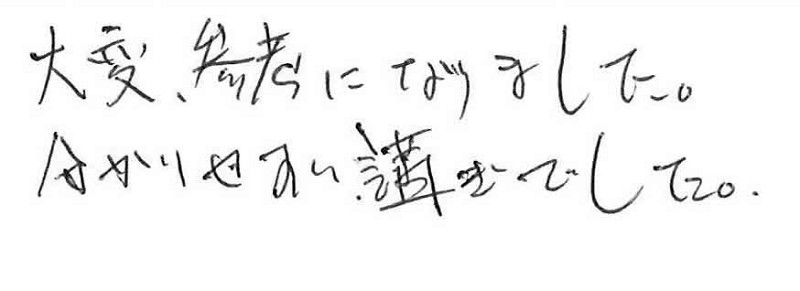 大変、参考になりました。
分かりやすい講ぎでした。